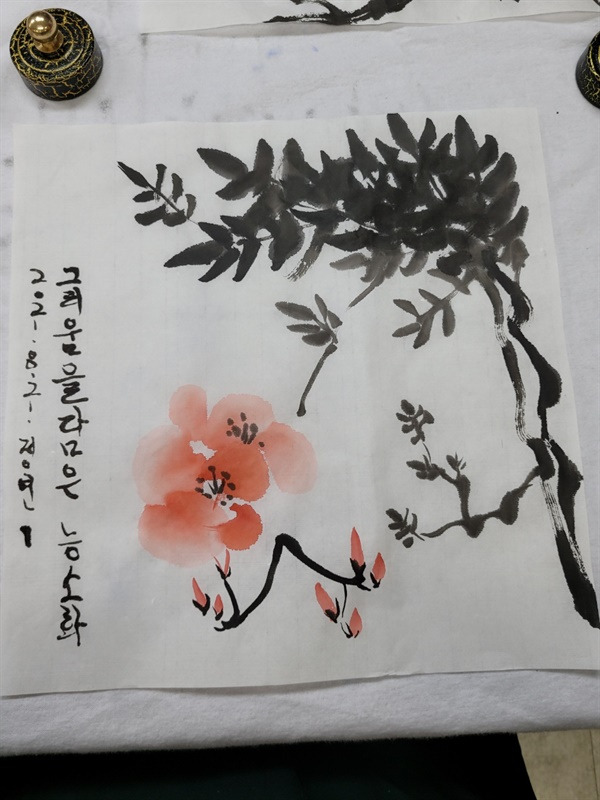 그리움을담은 능소화
2021.8.21.